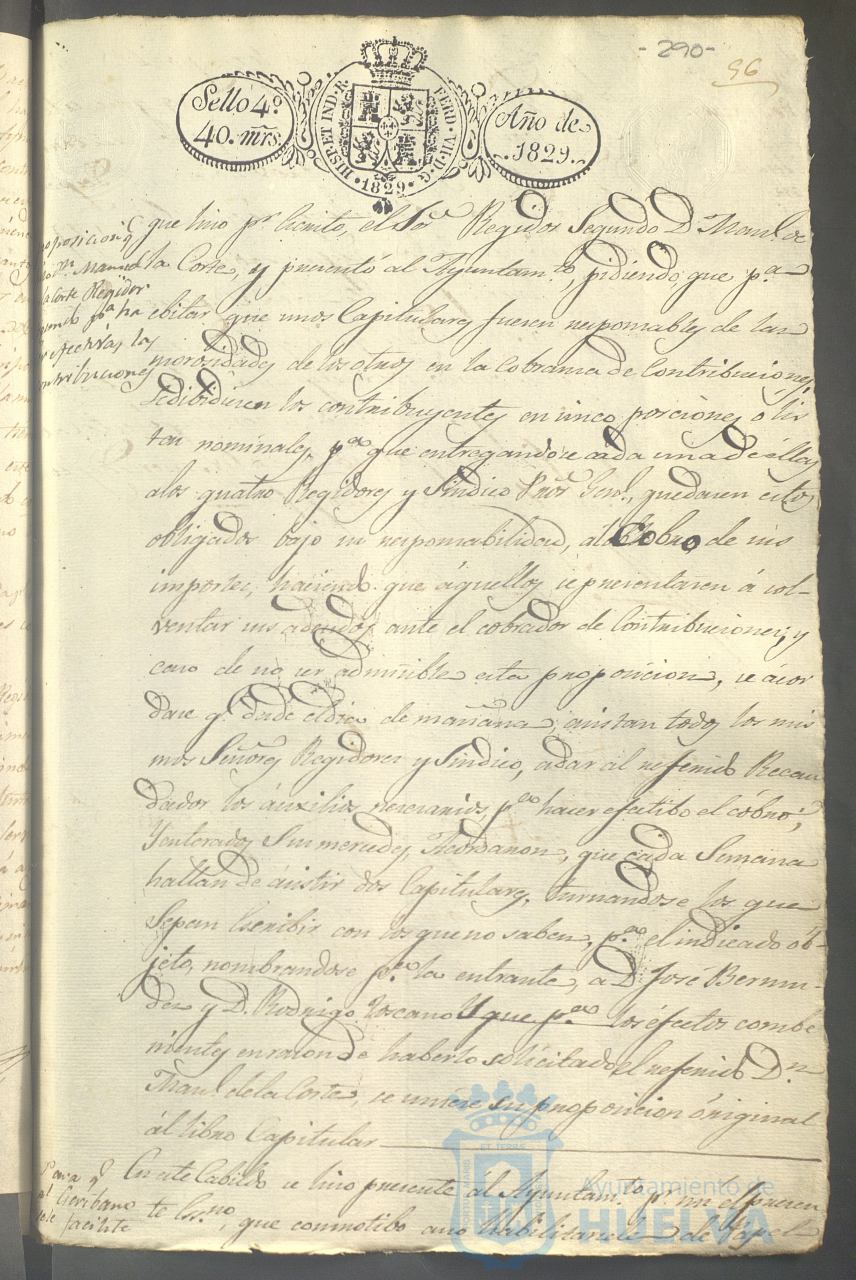 -290-
96
Sello 4º
40. mrs.
HISP. ET IND. R.
FERD. VII. D. G.
·1829·
Año de
1829.
Proposicion q.
hizo Dn. Manuel
de la Corte Regidor
segundo pª ha
cer efectibas las
contribuciones
que hizo pr. Escrito, el Sor. Regidor Segundo D. Manl. de
la Corte, y presentó al Ayuntamto., pidiendo, que pª
ebitar que unos Capitulares fuesen responsables de las
morosidades de los otros en la Cobranza de Contribuciones,
se dibidiesen los contribuyentes en cinco porciones o lis
tas nominales, pª que entregandose cada una de éllas
a los quatro Regidores y Sindico Pror. Genl., quedasen estos
obligados bajo su responsabilidad, al Cobro de sus
importes, haciendo que aquellos se presentaren á sol-
ventar sus adeudos ante el cobrador de Contribuciones; y
caso de no ser admisible esta proposicion, se acor
dase q. desde el dia de mañana, asistan todos los mis
mos Señores Regidores y Sindico, a dar al referido Recau
dador los áuxilios necesarios, pª hacer efectibo el cobro;
Y enterados Sus mercedes, Acordaron, que cada Semana
hallan de asistir dos Capitulares, turnandose los que
Sepan Escribir con los que no saben, pª el indicado ób-
jeto, nombrandose pª la entrante, a D. José Bermu-
dez y D. Rodrigo Toscano Y que pª los éfectos combe
nientes en razon de haberlo solicitado el referido Dn.
Manl. de la Corte, se uniese su proposicion óriginal
ál libro Capitular
Para q.
al Escribano
se le facilite
En este Cabildo se hizo presente al Ayuntamto. pr. mi el presen
te Essno., que con motibo haber habilitandole de Papel
Ayuntamiento de
HUELVA